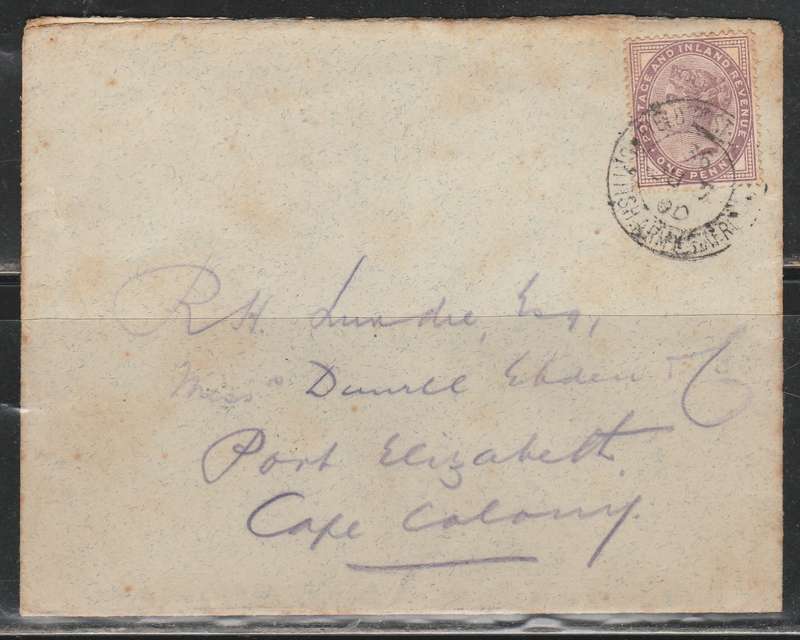 POSTAGE AND INLAND REVENUE
ONE PENNY
BRITISH ARMY S. AFRICA
00
R H. Lundie, Esq,
Mess
Dunell Ebden & Co
Port Elizabeth
Cape Colony.